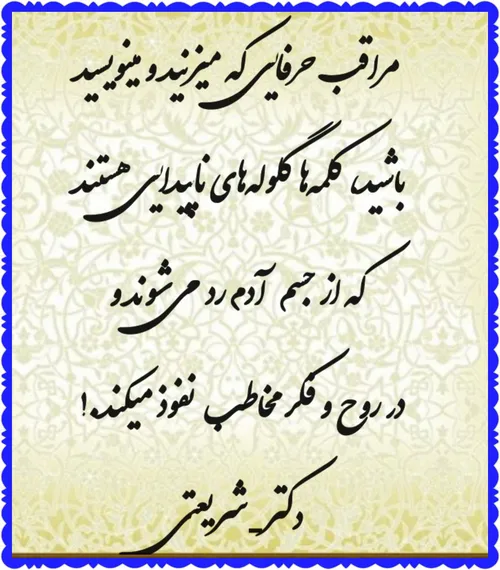 مراقب حرفایی که میزنید و مینویسید
باشید، کلمه‌ها گلوله‌های ناپیدایی هستند
که از جسم آدم رد می‌شوند و
در روح و فکر مخاطب نفوذ میکند.!
دکتر_شریعتی